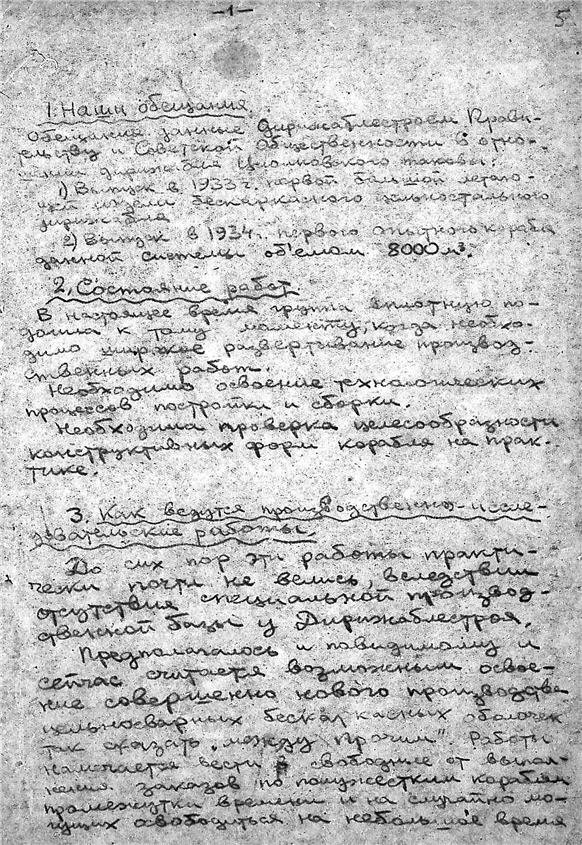 -1-
5
1. Наши обещания
Обещание данные Дирижаблестроем Прави-
тельству и Советской Общественности в отно-
шении дирижабля Циолковского таковы:
1) Выпуск в 1933 г. первой большой летаю-
щей модели бескаркасного цельностального
дирижабля
2) Выпуск в 1934 г. первого опытного корабля
данной системы об'емом 8000 м³.
2. Состояние работ
В настоящее время группа вплотную по-
дошла к тому моменту, когда необхо-
димо широкое развертывание производ-
ственных работ.
Необходимо освоение технологических
процессов постройки и сборки.
Необходима проверка целесообразности
конструктивных форм корабля на прак-
тике.
3. Как ведутся производственно-иссле-
довательские работы
До сих пор эти работы практи-
чески почти не велись, вследствии
отсутствия специальной производ-
ственной базы у Дирижаблестроя.
Предполагалось и повидимому и
сейчас считается возможным освое-
ние совершенно нового производства
цельносварных бескаркасных оболочек
так сказать „между прочим". Работы
намечается вести в свободные от выпол-
нения заказов по полужестким кораблям
промежутки времени и на случайно мо-
гущих освободиться на небольшое время